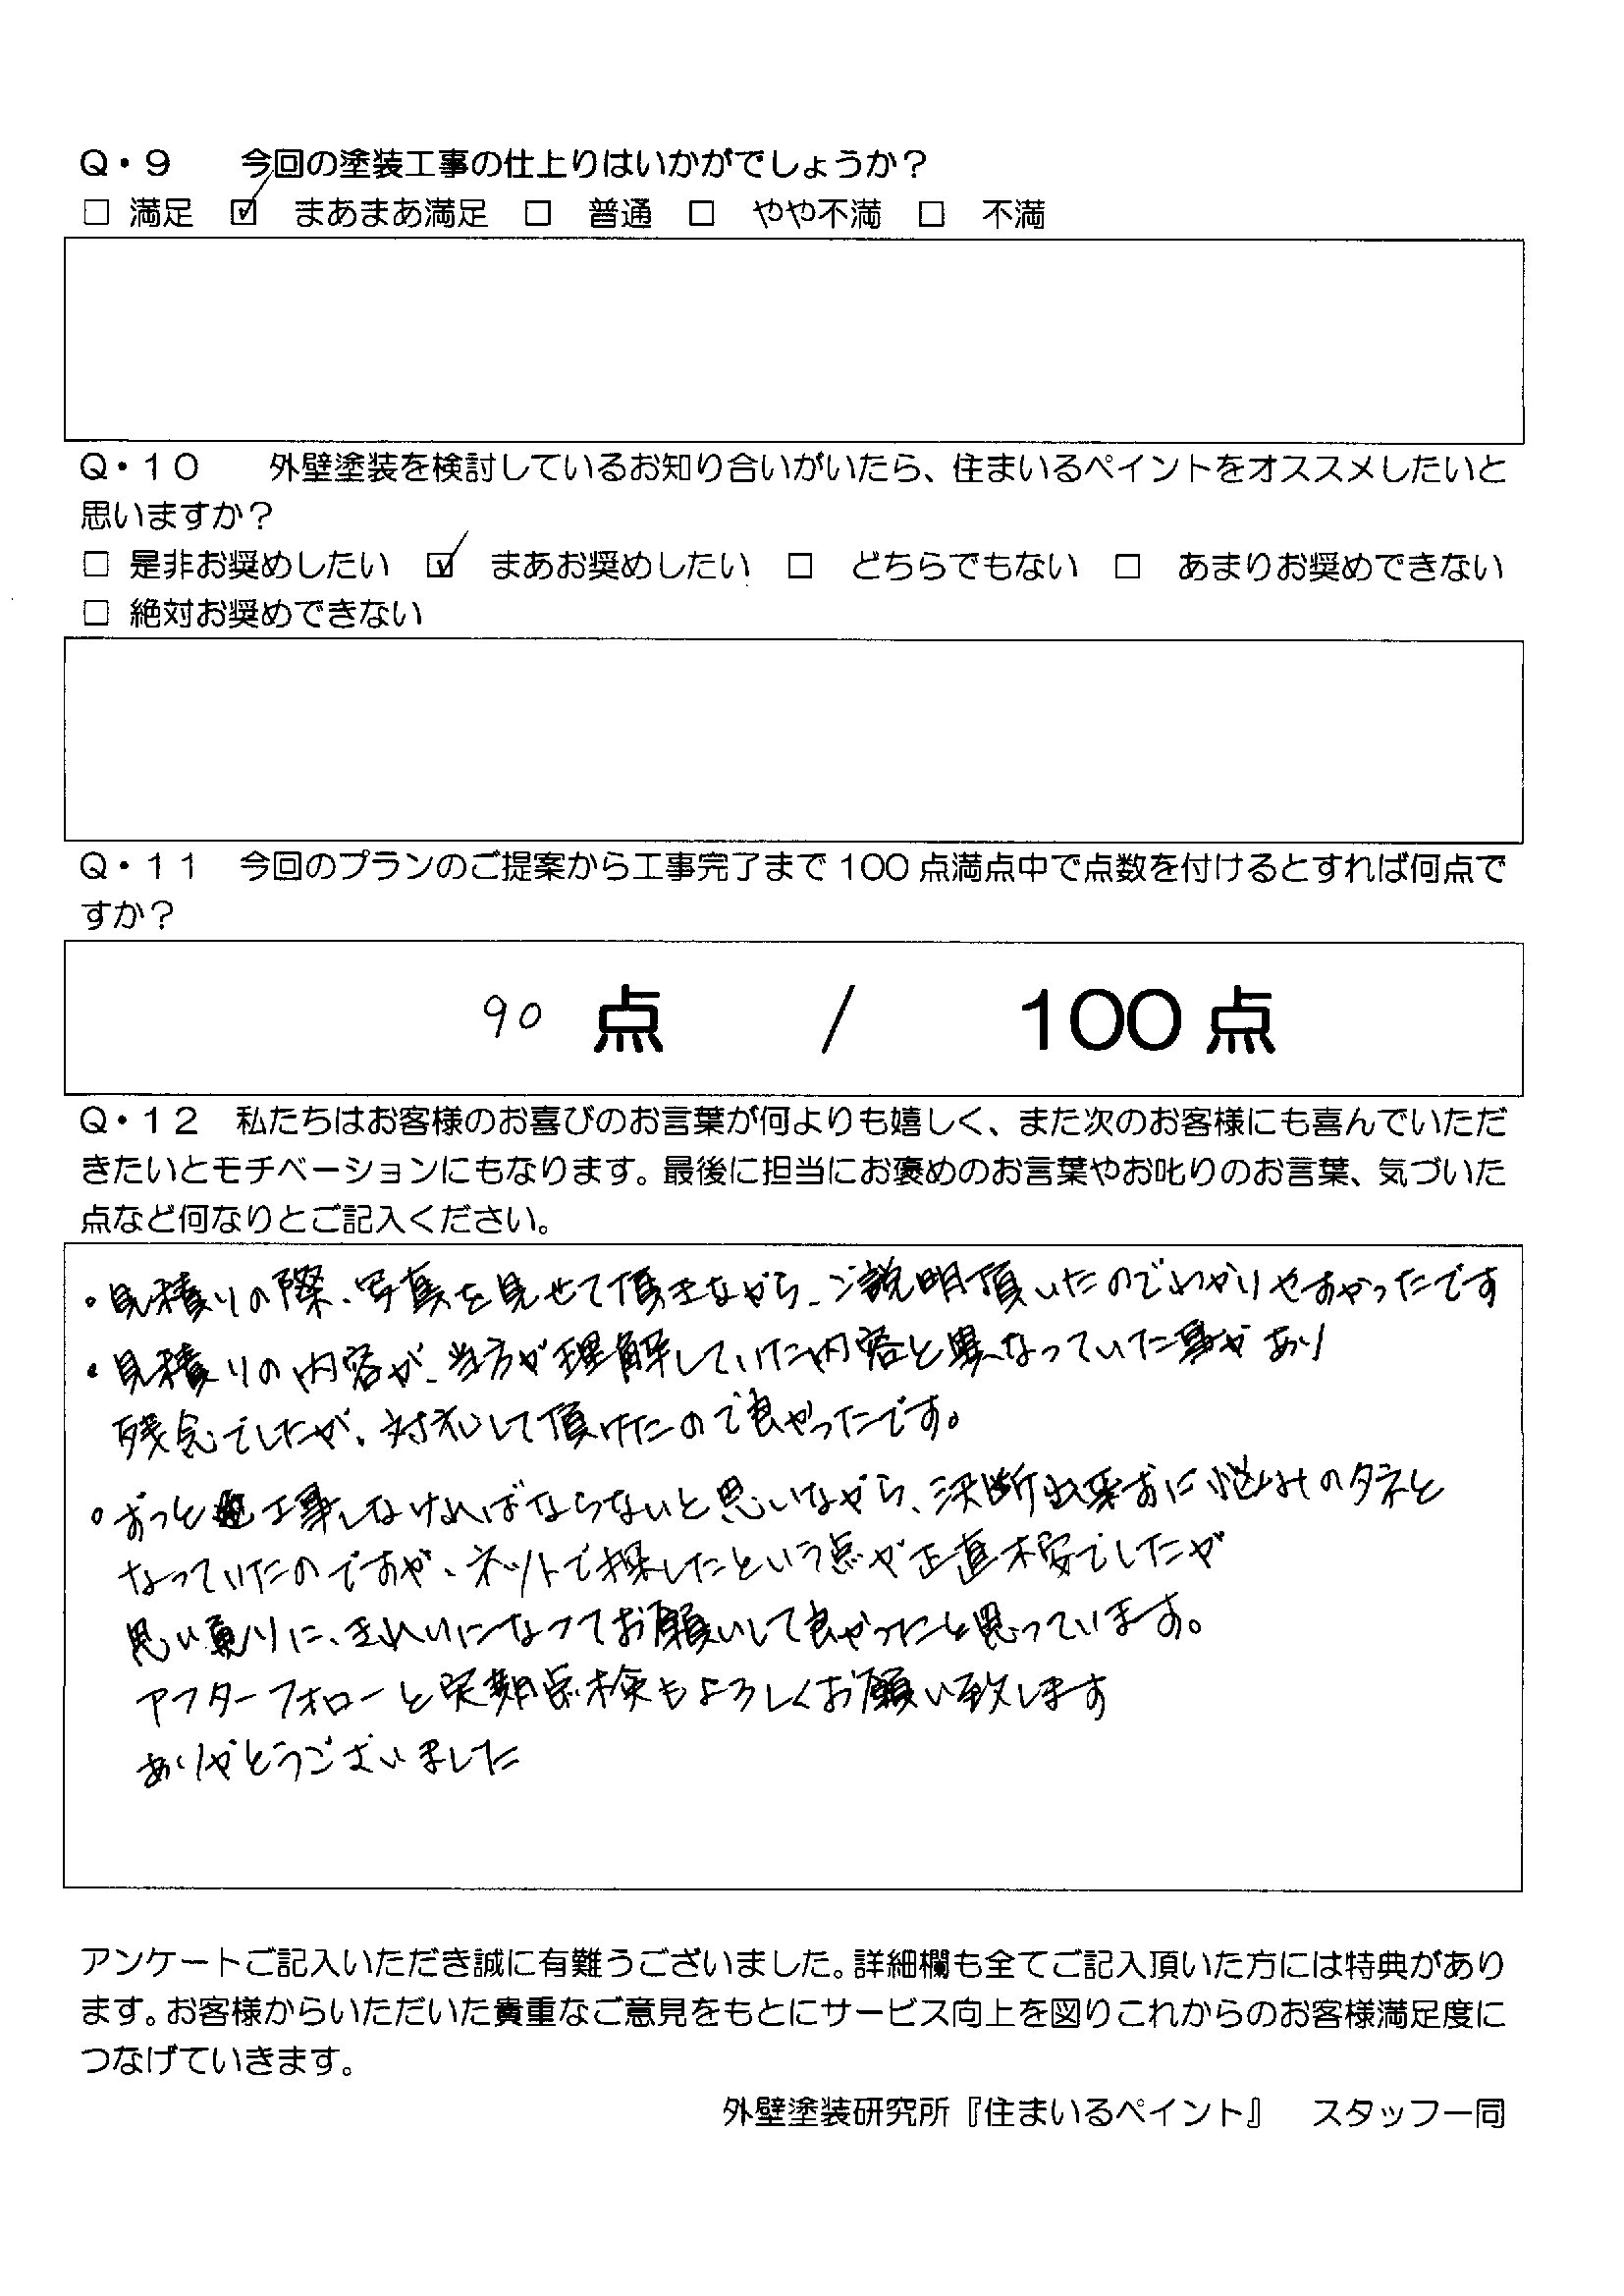 Q・9　今回の塗装工事の仕上りはいかがでしょうか？
□ 満足 ☑ まあまあ満足 □ 普通 □ やや不満 □ 不満
Q・10　外壁塗装を検討しているお知り合いがいたら、住まいるペイントをオススメしたいと
思いますか？
□ 是非お奨めしたい ☑ まあお奨めしたい □ どちらでもない □ あまりお奨めできない
□ 絶対お奨めできない
Q・11　今回のプランのご提案から工事完了まで100点満点中で点数を付けるとすれば何点で
すか？
90 点 / 100点
Q・12　私たちはお客様のお喜びのお言葉が何よりも嬉しく、また次のお客様にも喜んでいただ
きたいとモチベーションにもなります。最後に担当にお褒めのお言葉やお叱りのお言葉、気づいた
点など何なりとご記入ください。
・見積りの際、写真を見せて頂きながら、ご説明頂いたのでわかりやすかったです
・見積りの内容が、当方が理解していた内容と異なっていた事があり
残念でしたが、対応して頂けたので良かったです。
・ずっと工事しなければならないと思いながら、決断出来ずに悩みのタネと
なっていたのですが、ネットで探したという点が正直不安でしたが
思い通りに、きれいになってお願いして良かったと思っています。
アフターフォローと定期点検もよろしくお願い致します
ありがとうございました
アンケートご記入いただき誠に有難うございました。詳細欄も全てご記入頂いた方には特典があり
ます。お客様からいただいた貴重なご意見をもとにサービス向上を図りこれからのお客様満足度に
つなげていきます。
外壁塗装研究所『住まいるペイント』　スタッフ一同